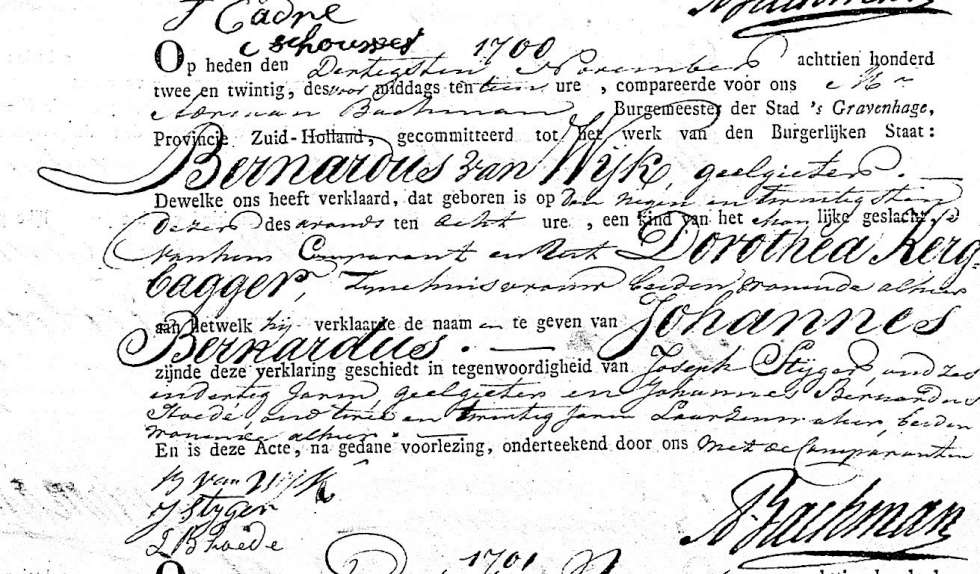 Cadre
Schouwses
1700
Op heden den Dertigsten November achttien honderd
twee en twintig, des voor middags ten tien ure , compareerde voor ons Mr
Adriaan Bachman, Burgemeester der Stad 's Gravenhage,
Provincie Zuid-Holland, gecommitteerd tot het werk van den Burgerlijken Staat:
Bernardus van Wijk, geelgieter.
Dewelke ons heeft verklaard, dat geboren is op den negen en twintigsten
dezer des avonds ten acht ure , een kind van het man lijke geslacht,
van hem Comparant en Dorothea Kerg-
bagger, Zyne huisvrouw beiden, wonende alhier
aan hetwelk hij verklaarde de naam en te geven van Johannes
Bernardus.
zijnde deze verklaring geschiedt in tegenwoordigheid van Joseph Styger, oud zes
en dertig Jaren, geelgieter en Johannes Bernardus
Hoede, oud en twintig Jaren beiden
wonende alhier.
En is deze Acte, na gedane voorlezing, onderteekend door ons met de Comparanten
B van Wijk
J Styger
J B Hoede
A Bachman
1701